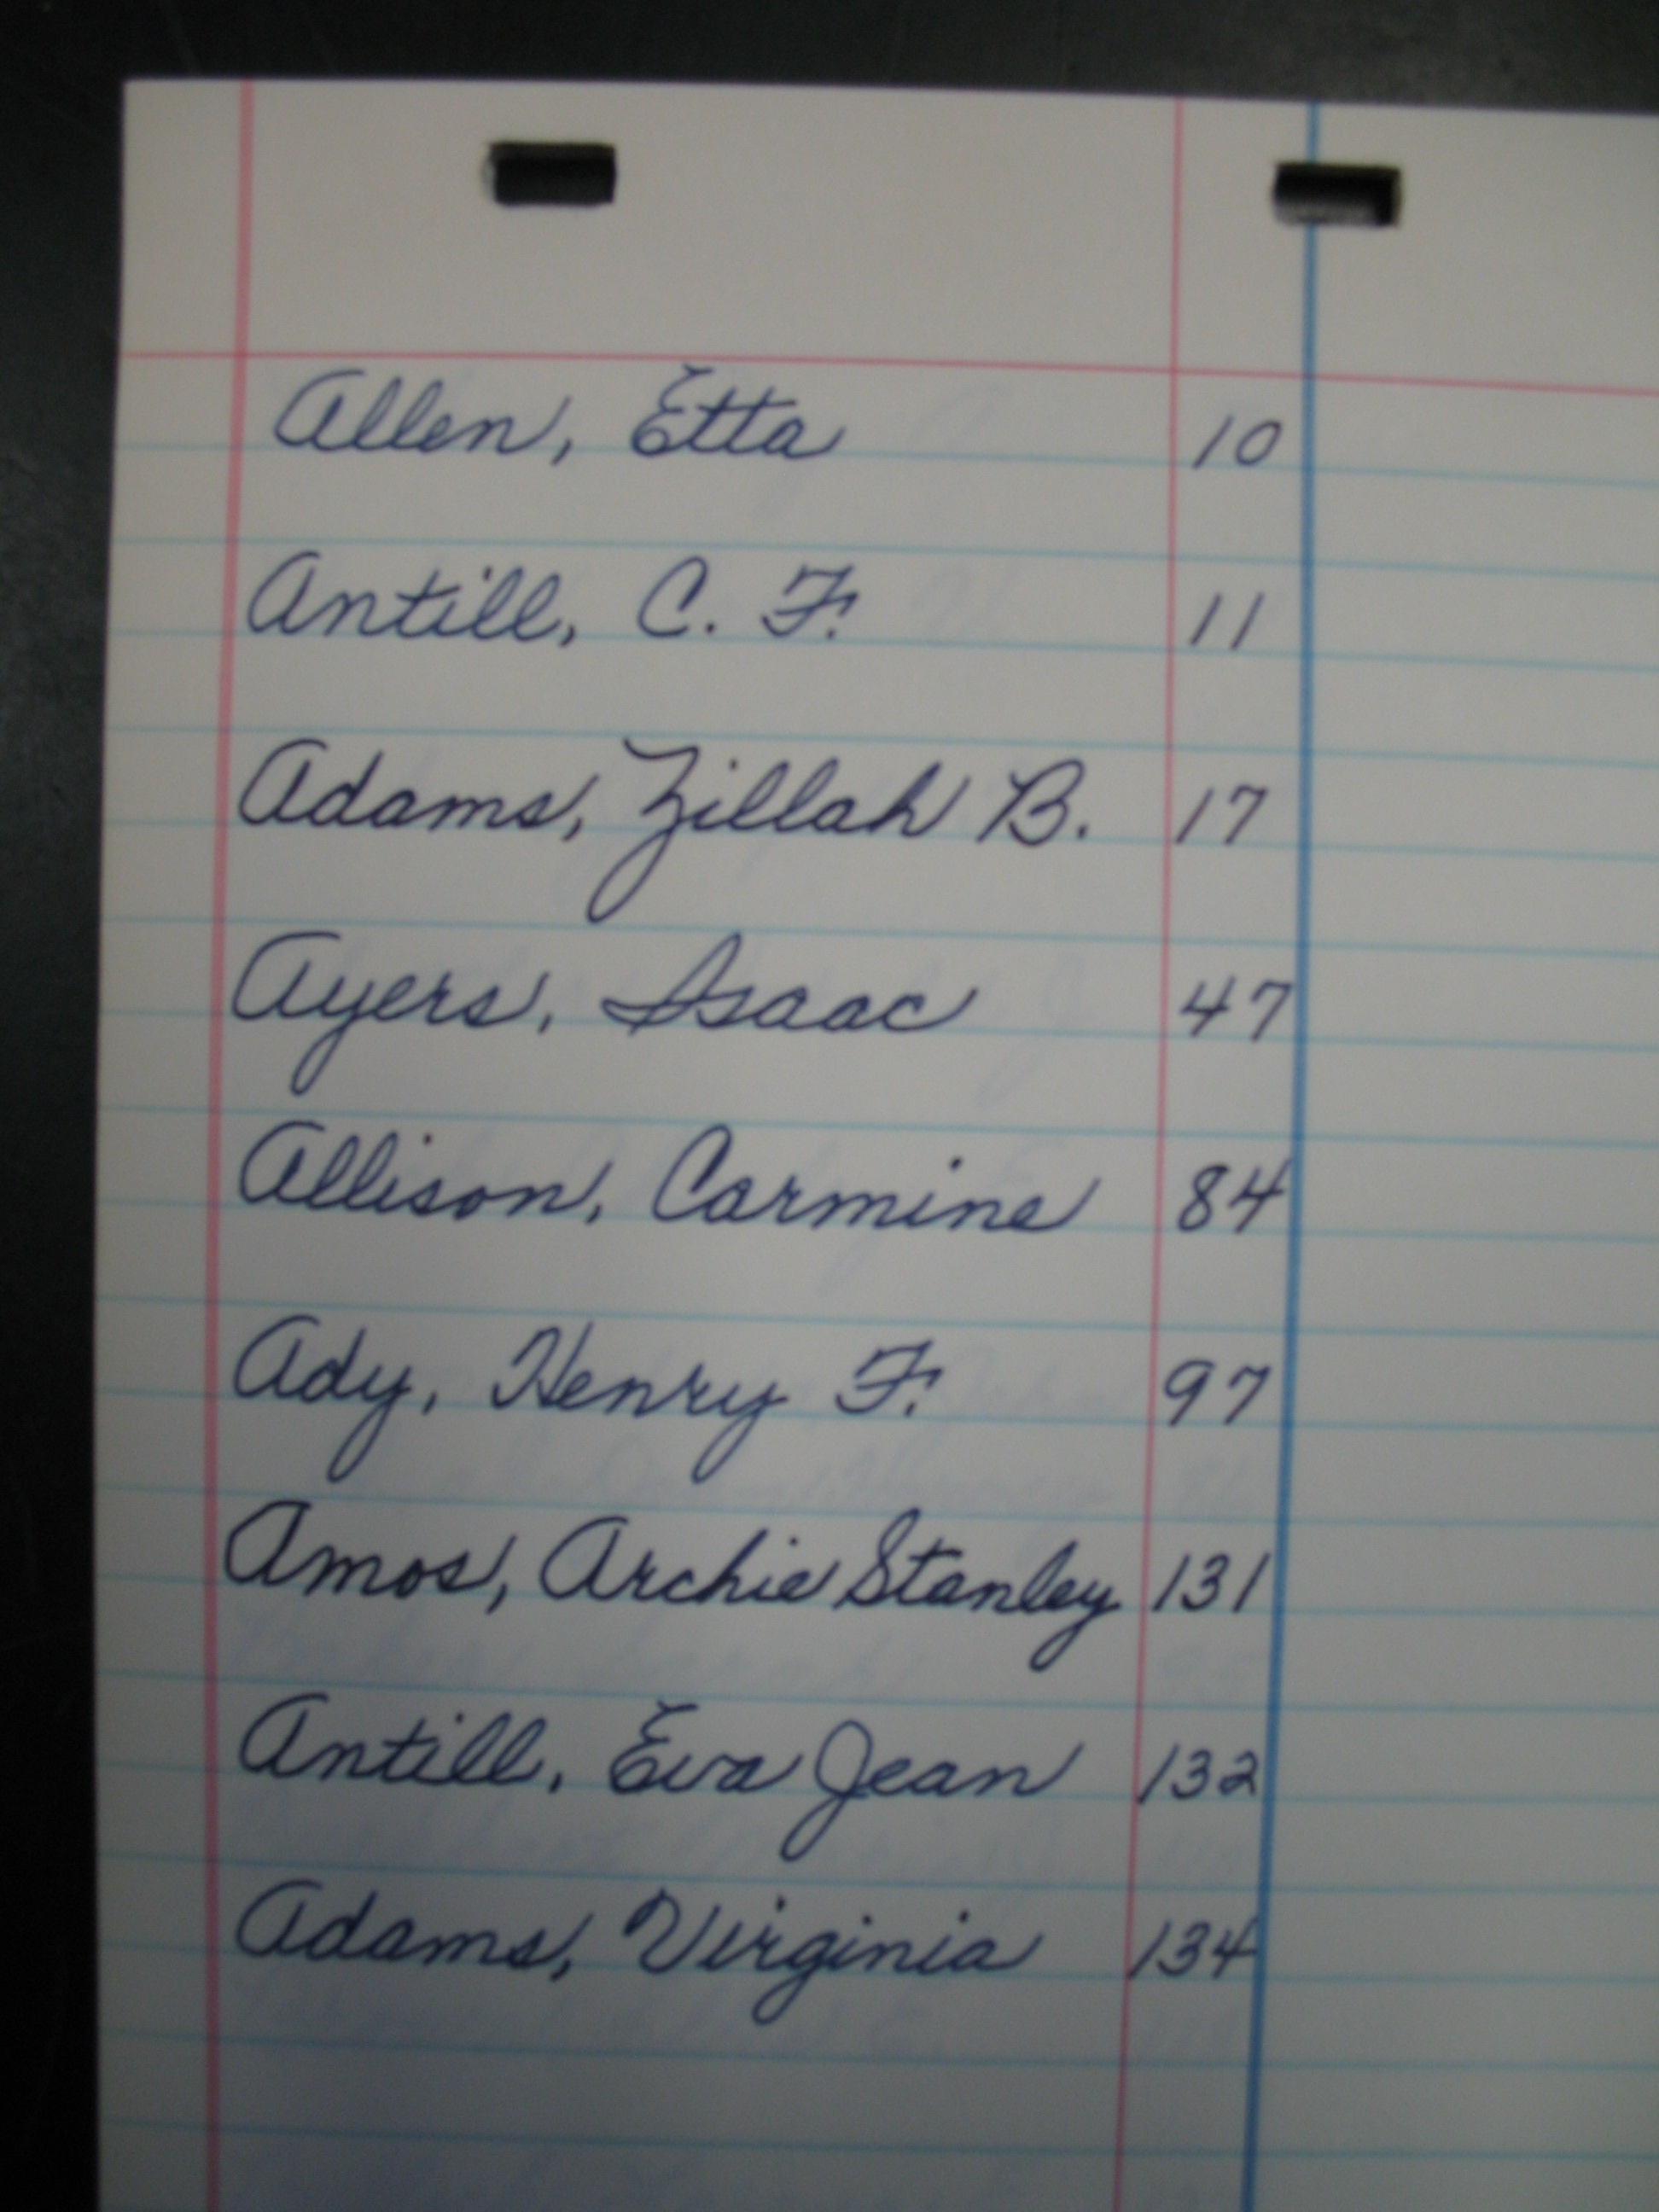 Allen, Etta 10
Antill, C. F. 11
Adams, Zillah B. 17
Ayers, Isaac 47
Allison, Carmine 84
Ady, Henry F. 97
Amos, Archie Stanley 131
Antill, Eva Jean 132
Adams, Virginia 134